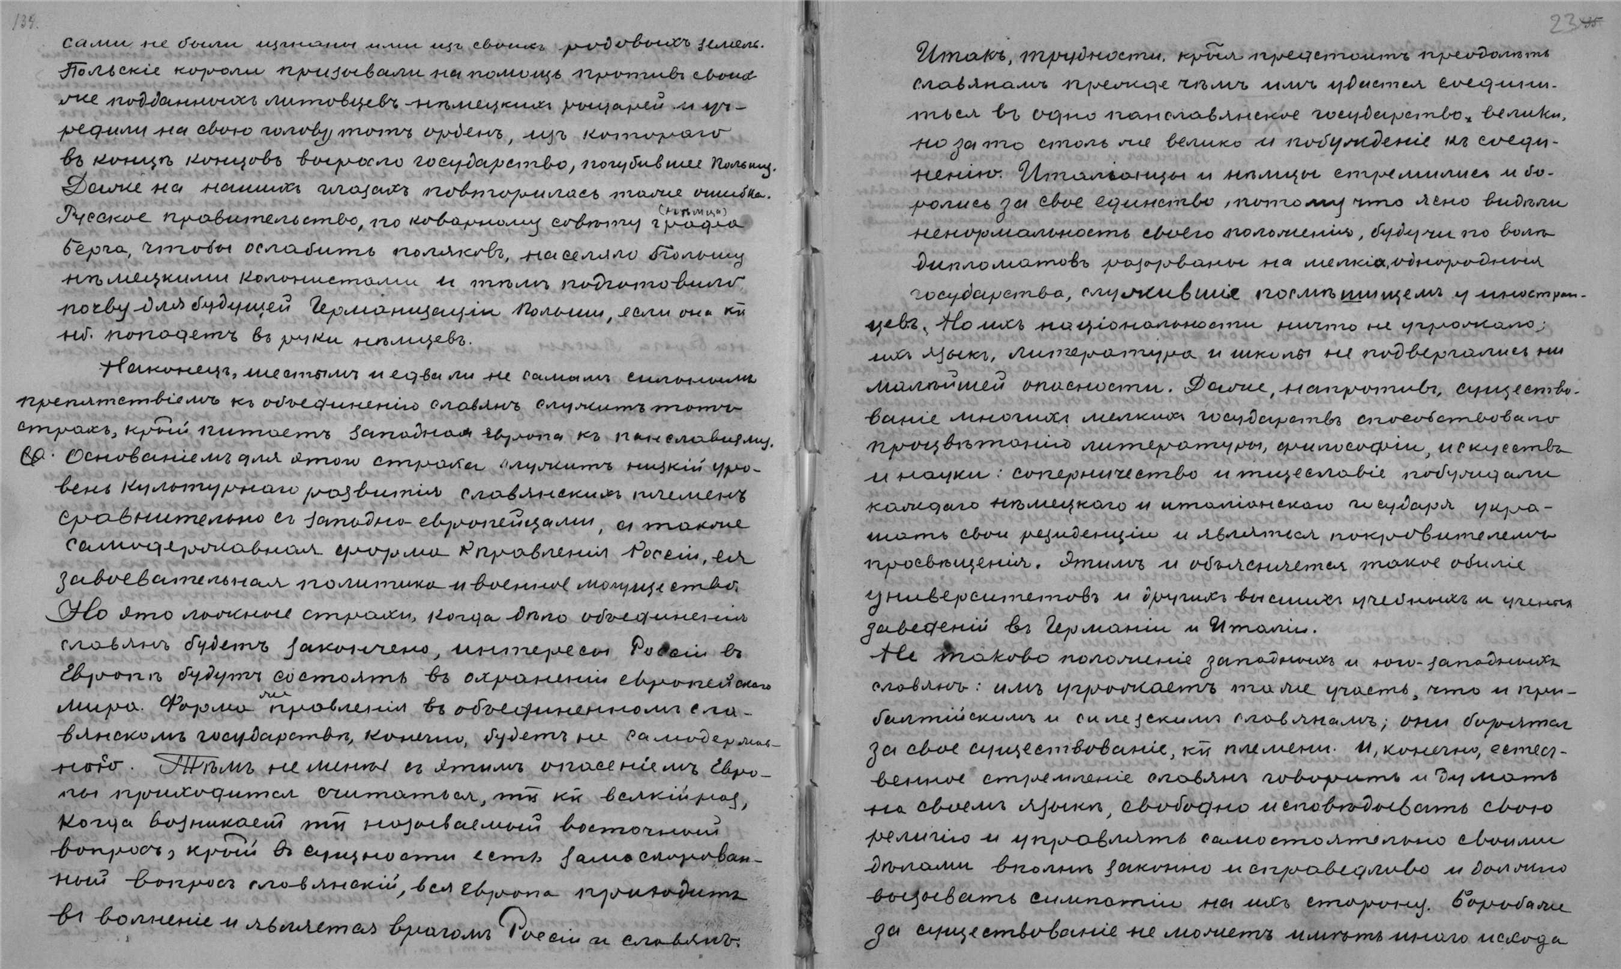 139.
сами не были изгнаны ими изъ своихъ родовыхъ земель.
Польскіе короли призывали на помощь противъ своихъ
же подданныхъ литовцевъ нѣмецкихъ рыцарей и уч-
редили на свою голову тотъ орденъ, изъ котораго
въ концѣ концовъ выросло государство, погубившее Польшу.
Даже на нашихъ глазахъ повторилась таже ошибка.
Русское правительство, по коварному совѣту (нѣмца) графа
Берга, чтобы ослабить поляковъ, населяло Польшу
нѣмецкими колонистами и тѣмъ подготовило
почву для будущей Германизаціи Польши, если она кд
нб. попадетъ въ руки нѣмцевъ.
Наконецъ, шестымъ и едва ли не самымъ сильнымъ
препятствіемъ къ объединенію славянъ служитъ тотъ
страхъ, крый питаетъ западная Европа къ панславизму.
Основаніемъ для этого страха служитъ низкій уро-
вень культурнаго развитія славянскихъ племенъ
сравнительно съ западно-европейцами, а также
самодержавная форма правленія Россіи, ея
завоевательная политика и военное могущество.
Но это ложные страхи, когда дѣло объединенія
славянъ будетъ закончено, интересы Россіи въ
Европѣ будутъ состоять въ охраненіи европейскаго
мира. Форма же правленія въ объединенномъ сла-
вянскомъ государствѣ, конечно, будетъ не самодержав-
ною. Тѣмъ не менѣе съ этимъ опасеніемъ Евро-
пы приходится считаться, тк кк всякій разъ,
когда возникаетъ тк называемый восточный
вопросъ, крый въ сущности есть замаскирован-
ный вопросъ славянскій, вся Европа приходитъ
въ волненіе и является врагомъ Россіи и славянъ.
23
Итакъ, трудности, крыя предстоитъ преодолѣть
славянамъ прежде чѣмъ имъ удастся соедини-
ться въ одно панславянское государство, велики,
но зато столь же велико и побужденіе къ соеди-
ненію. Итальянцы и нѣмцы стремились и бо-
ролись за свое единство, потому что ясно видѣли
ненормальность своего положенія, будучи по волѣ
дипломатовъ разорваны на мелкія, однородныя
государства, служившіе посмѣшищемъ у иностран-
цевъ. Но ихъ національности ничто не угрожало;
ихъ языкъ, литература и школы не подвергались ни
малѣйшей опасности. Даже, напротивъ, существо-
ваніе многихъ мелкихъ государствъ способствовало
процвѣтанію литературы, философіи, искусствъ
и науки: соперничество и тщеславіе побуждали
каждаго нѣмецкаго и италіанскаго государя укра-
шать свои резиденціи и являться покровителемъ
просвѣщенія. Этимъ и объясняется такое обиліе
университетовъ и другихъ высшихъ учебныхъ и ученыхъ
заведеній въ Германіи и Италіи.
Не таково положеніе западныхъ и юго-западныхъ
славянъ: имъ угрожаетъ таже участь, что и при-
балтійскимъ и силезскимъ славянамъ; они борятся
за свое существованіе, кк племени. И, конечно, естест-
венное стремленіе славянъ говорить и думать
на своемъ языкѣ, свободно исповѣдывать свою
религію и управлять самостоятельно своими
дѣлами вполнѣ законно и справедливо и должно
вызывать симпатіи на ихъ сторону. Борьба же
за существованіе не можетъ имѣть иного исхода